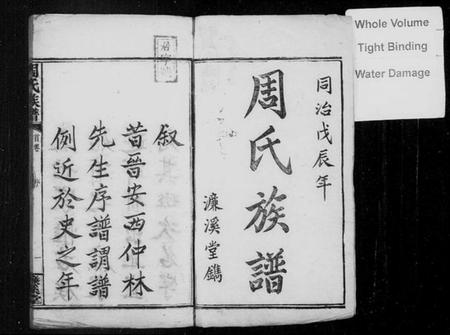 Whole Volume
Tight Binding
Water Damage
同治戊辰年
周氏族譜
濂溪堂鐫
叙
昔晉安西仲林
先生序譜謂譜
例近於史之年
周氏族譜